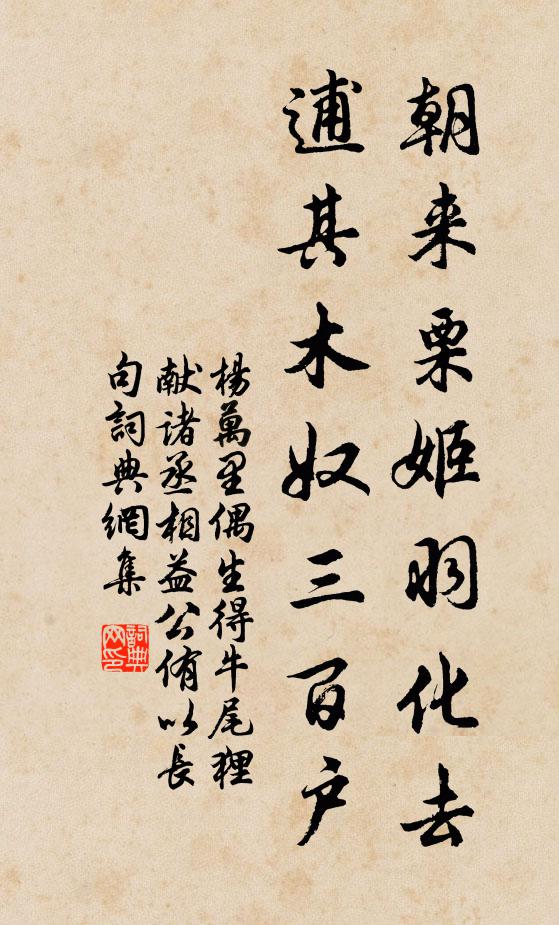 朝来栗姬羽化去
逋其木奴三百户
楊萬里偶生得牛尾狸
献诸丞相益公侑以長
句詞典網集
詞典网印